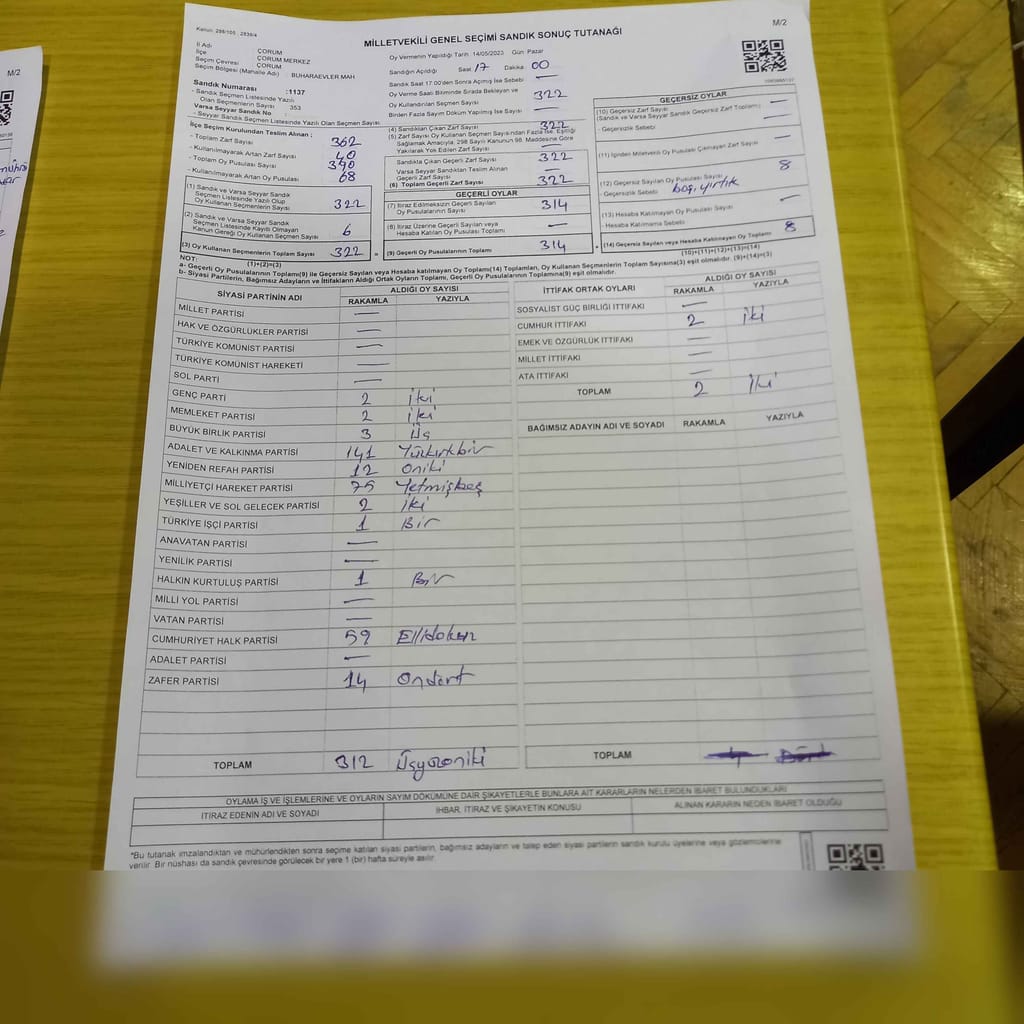 Kanun: 298/105 ; 2839/4
M/2
MİLLETVEKİLİ GENEL SEÇİMİ SANDIK SONUÇ TUTANAĞI
İl Adı : ÇORUM
İlçe : ÇORUM MERKEZ
Seçim Çevresi : ÇORUM
Seçim Bölgesi (Mahalle Adı) : BUHARAEVLER MAH
Sandık Numarası :1137
- Sandık Seçmen Listesinde Yazılı
Olan Seçmenlerin Sayısı 353
Varsa Seyyar Sandık No :
- Seyyar Sandık Seçmen Listesinde Yazılı Olan Seçmen Sayısı
Oy Vermenin Yapıldığı Tarih :14/05/2023 Gün Pazar
Sandığın Açıldığı Saat 17 Dakika 00
Sandık Saat 17:00'den Sonra Açılmış İse Sebebi —
Oy Verme Saati Bitiminde Sırada Bekleyen ve
Oy Kullandırılan Seçmen Sayısı 322
Birden Fazla Sayım Döküm Yapılmış İse Sayısı —
İlçe Seçim Kurulundan Teslim Alınan ;
- Toplam Zarf Sayısı 362
- Kullanılmayarak Artan Zarf Sayısı 40
- Toplam Oy Pusulası Sayısı 390
- Kullanılmayarak Artan Oy Pusulası 68
(1) Sandık ve Varsa Seyyar Sandık
Seçmen Listesinde Yazılı Olup
Oy Kullanan Seçmenlerin Sayısı 322
(2) Sandık ve Varsa Seyyar Sandık
Seçmen Listesinde Kayıtlı Olmayan
Kanun Gereği Oy Kullanan Seçmen Sayısı 6
(3) Oy Kullanan Seçmenlerin Toplam Sayısı 322
(1)+(2)=(3)
(4) Sandıktan Çıkan Zarf Sayısı 322
(5) Zarf Sayısı Oy Kullanan Seçmen Sayısından Fazla İse, Eşitliği
Sağlamak Amacıyla, 298 Sayılı Kanunun 98. Maddesine Göre
Yakılarak Yok Edilen Zarf Sayısı —
Sandıkta Çıkan Geçerli Zarf Sayısı 322
Varsa Seyyar Sandıktan Teslim Alınan
Geçerli Zarf Sayısı —
(6) Toplam Geçerli Zarf Sayısı 322
GEÇERLİ OYLAR
(7) İtiraz Edilmeksizin Geçerli Sayılan
Oy Pusulalarının Sayısı 314
(8) İtiraz Üzerine Geçerli Sayılan veya
Hesaba Katılan Oy Pusulası Toplamı —
= (9) Geçerli Oy Pusulalarının Toplamı 314
GEÇERSİZ OYLAR
(10) Geçersiz Zarf Sayısı
(Sandık ve Varsa Seyyar Sandık Geçersiz Zarf Toplamı) —
- Geçersizlik Sebebi —
(11) İçinden Milletvekili Oy Pusulası Çıkmayan Zarf Sayısı —
(12) Geçersiz Sayılan Oy Pusulası Sayısı 8
- Geçersizlik Sebebi boş, yırtık
(13) Hesaba Katılmayan Oy Pusulası Sayısı —
- Hesaba Katılmama Sebebi
+ (14) Geçersiz Sayılan veya Hesaba Katılmayan Oy Toplamı 8
(10)+(11)+(12)+(13)=(14)
NOT:
a- Geçerli Oy Pusulalarının Toplamı(9) ile Geçersiz Sayılan veya Hesaba katılmayan Oy Toplamı(14) Toplamları, Oy Kullanan Seçmenlerin Toplam Sayısına(3) eşit olmalıdır. (9)+(14)=(3)
b- Siyasi Partilerin, Bağımsız Adayların ve İttifakların Aldığı Ortak Oyların Toplamı, Geçerli Oy Pusulalarının Toplamına(9) eşit olmalıdır.
SİYASİ PARTİNİN ADI ALDIĞI OY SAYISI
RAKAMLA YAZIYLA
MİLLET PARTİSİ —
HAK VE ÖZGÜRLÜKLER PARTİSİ —
TÜRKİYE KOMÜNİST PARTİSİ —
TÜRKİYE KOMÜNİST HAREKETİ —
SOL PARTİ —
GENÇ PARTİ 2 iki
MEMLEKET PARTİSİ 2 iki
BÜYÜK BİRLİK PARTİSİ 3 Üç
ADALET VE KALKINMA PARTİSİ 141 Yüzkırkbir
YENİDEN REFAH PARTİSİ 12 Oniki
MİLLİYETÇİ HAREKET PARTİSİ 75 Yetmişbeş
YEŞİLLER VE SOL GELECEK PARTİSİ 2 iki
TÜRKİYE İŞÇİ PARTİSİ 1 Bir
ANAVATAN PARTİSİ —
YENİLİK PARTİSİ —
HALKIN KURTULUŞ PARTİSİ 1 Bir
MİLLİ YOL PARTİSİ —
VATAN PARTİSİ —
CUMHURİYET HALK PARTİSİ 59 Ellidokuz
ADALET PARTİSİ —
ZAFER PARTİSİ 14 Ondört
TOPLAM 312 Üçyüzoniki
İTTİFAK ORTAK OYLARI ALDIĞI OY SAYISI
RAKAMLA YAZIYLA
SOSYALİST GÜÇ BİRLİĞİ İTTİFAKI —
CUMHUR İTTİFAKI 2 iki
EMEK VE ÖZGÜRLÜK İTTİFAKI —
MİLLET İTTİFAKI —
ATA İTTİFAKI —
TOPLAM 2 iki
BAĞIMSIZ ADAYIN ADI VE SOYADI RAKAMLA YAZIYLA
TOPLAM
OYLAMA İŞ VE İŞLEMLERİNE VE OYLARIN SAYIM DÖKÜMÜNE DAİR ŞİKAYETLERLE BUNLARA AİT KARARLARIN NELERDEN İBARET BULUNDUKLARI
İTİRAZ EDENİN ADI VE SOYADI İHBAR, İTİRAZ VE ŞİKAYETİN KONUSU ALINAN KARARIN NEDEN İBARET OLDUĞU
*Bu tutanak imzalandıktan ve mühürlendikten sonra seçime katılan siyasi partilerin, bağımsız adayların ve talep eden siyasi partilerin sandık kurulu üyelerine veya gözlemcilerine
verilir. Bir nüshası da sandık çevresinde görülecek bir yere 1 (bir) hafta süreyle asılır.
M/2